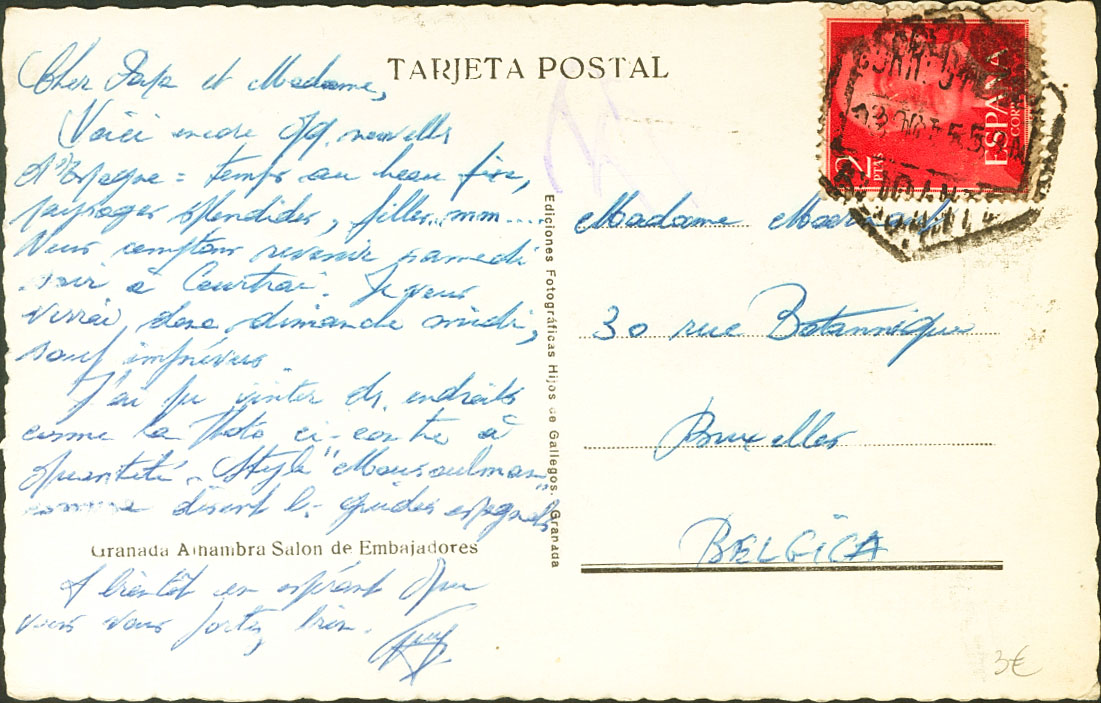 TARJETA POSTAL
Cher Papa et Madame,
Voici encore qq. nouvelles
d'Espagne = temps au beau fixe,
paysages splendides, filles..mm....
Nous comptons revenir samedi
soir à Courtrai. Je vous
verrai donc dimanche midi,
sauf imprévus.
J'ai pu visiter des endroits
comme la photo ci-contre à
quantité. Style "Mousoulman"
comme disent les guides espagnols
Granada Alhambra Salon de Embajadores
A bientôt en espérant que
vous vous portez bien.
Ediciones Fotográficas Hijos de Gallegos. Granada
ESPAÑA
CORREOS
2
PTAS
Madame
30 rue Botannique
Bruxelles
BELGÏCA
3€